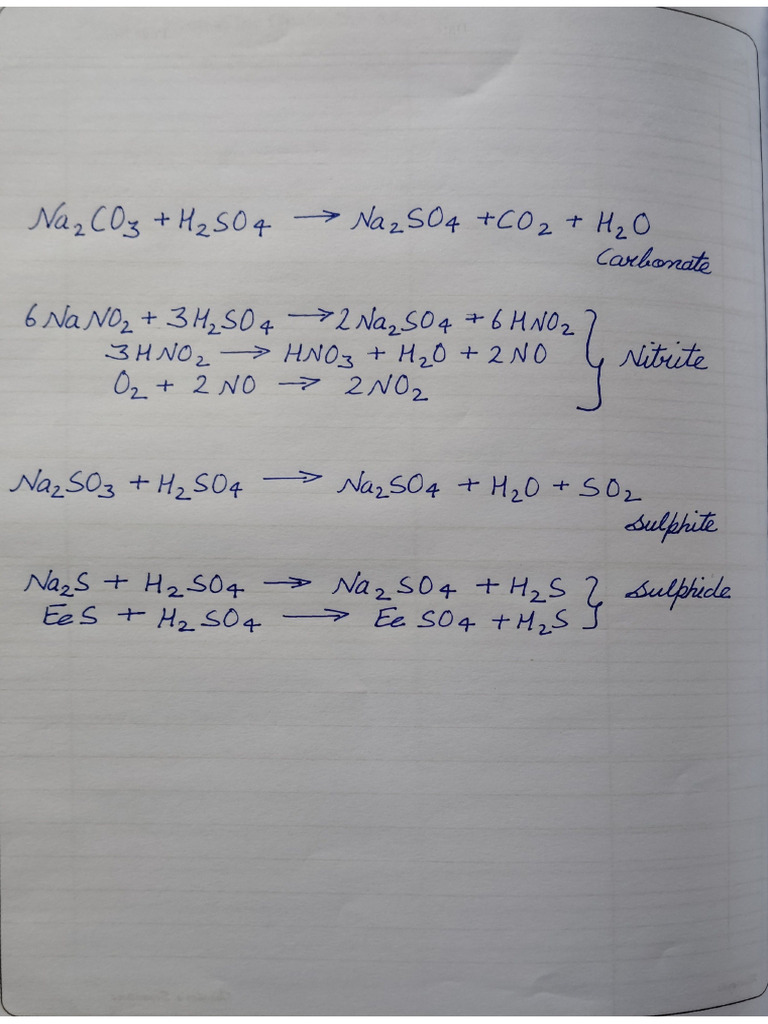 Na₂CO₃ + H₂SO₄ → Na₂SO₄ + CO₂ + H₂O
Carbonate
6NaNO₂ + 3H₂SO₄ → 2Na₂SO₄ + 6HNO₂
3HNO₂ → HNO₃ + H₂O + 2NO } Nitrite
O₂ + 2NO → 2NO₂
Na₂SO₃ + H₂SO₄ → Na₂SO₄ + H₂O + SO₂
Sulphite
Na₂S + H₂SO₄ → Na₂SO₄ + H₂S } Sulphide
EeS + H₂SO₄ → EeSO₄ + H₂S